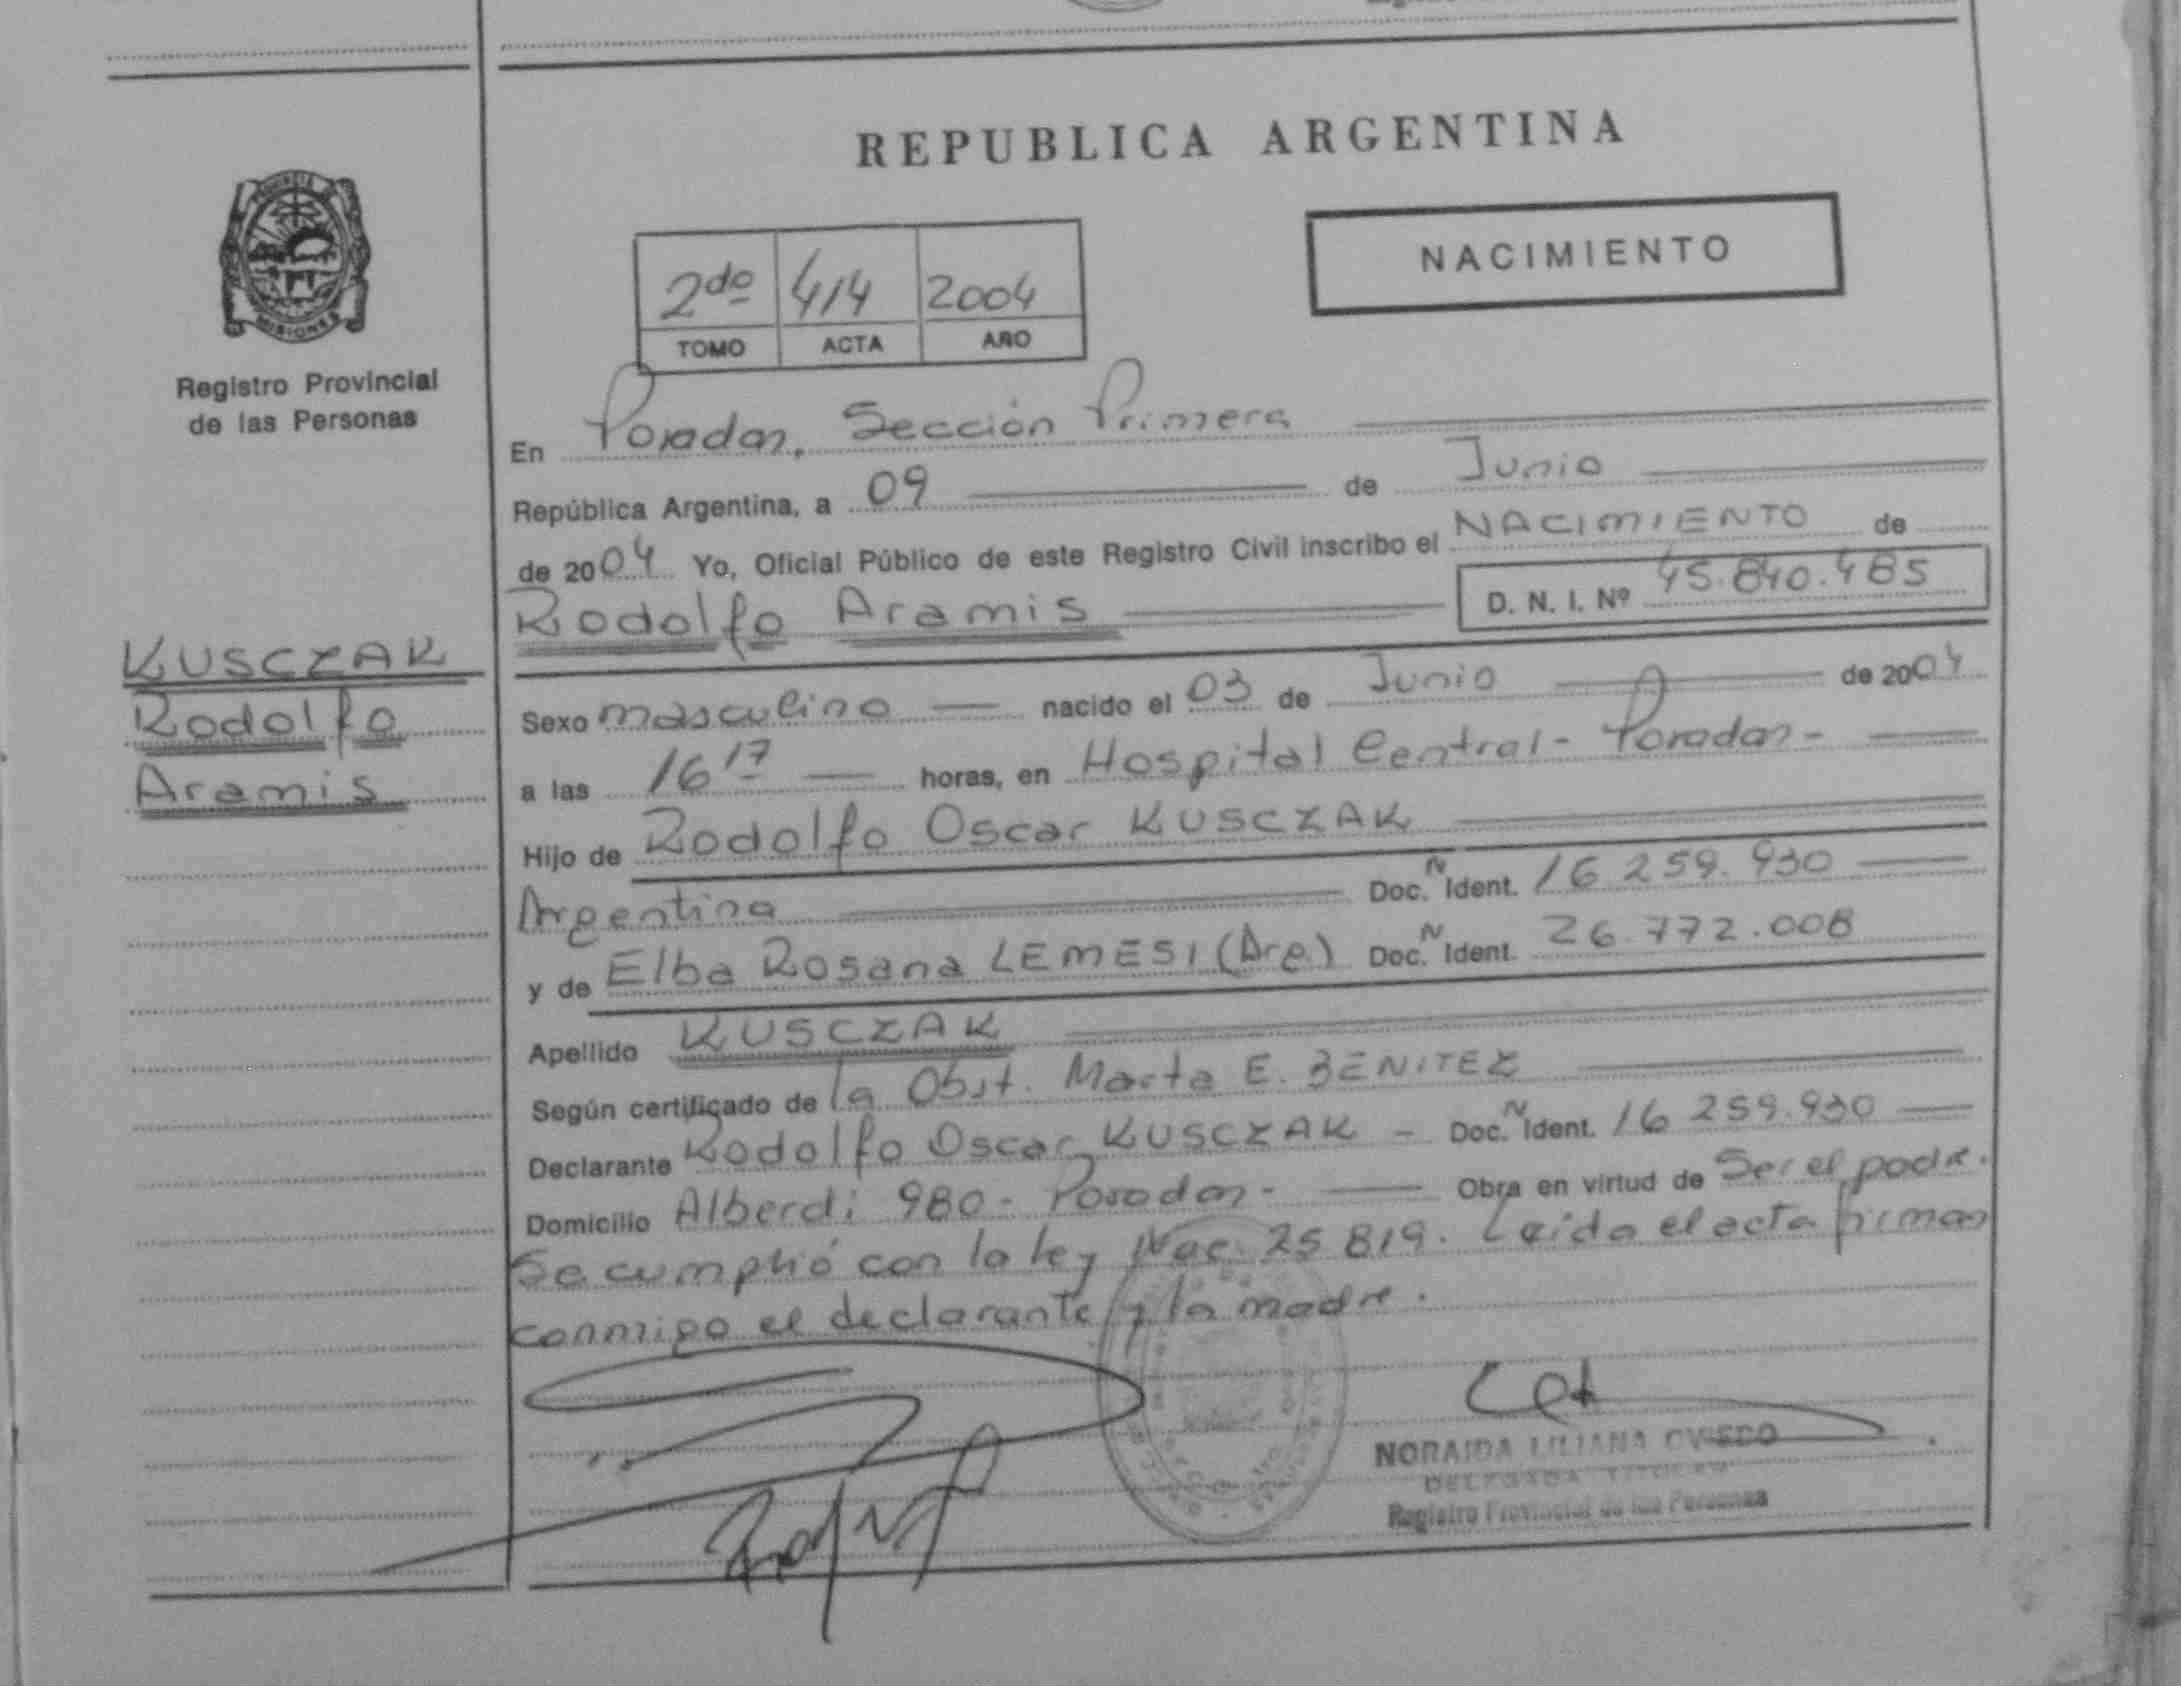 REPUBLICA ARGENTINA
NACIMIENTO
2do 414 2004
TOMO ACTA AÑO
PROVINCIA DE
MISIONES
Registro Provincial
de las Personas
KUSCZAK
Rodolfo
Aramis
En Posadas, Sección Primera
República Argentina, a 09 de Junio
de 2004 Yo, Oficial Público de este Registro Civil inscribo el NACIMIENTO de
Rodolfo Aramis D. N. I. Nº 45.840.485
Sexo masculino nacido el 03 de Junio de 2004
a las 16 17 horas, en Hospital Central - Posadas -
Hijo de Rodolfo Oscar KUSCZAK
Argentina Doc. N Ident. 16 259.930
y de Elba Rosana LEMESI (Arg.) Doc. N Ident. 26.772.008
Apellido KUSCZAK
Según certificado de la Obst. Marta E. BENITEZ
Declarante Rodolfo Oscar KUSCZAK - Doc. N Ident. 16 259.930
Domicilio Alberdi 980 - Posadas - Obra en virtud de Ser el padre.
Se cumplió con la ley Nac. 25 819. Leída el acta firman
conmigo el declarante y la madre.
NORAIDA LILIANA OVIEDO
DELEGADA TITULAR
Registro Provincial de las Personas